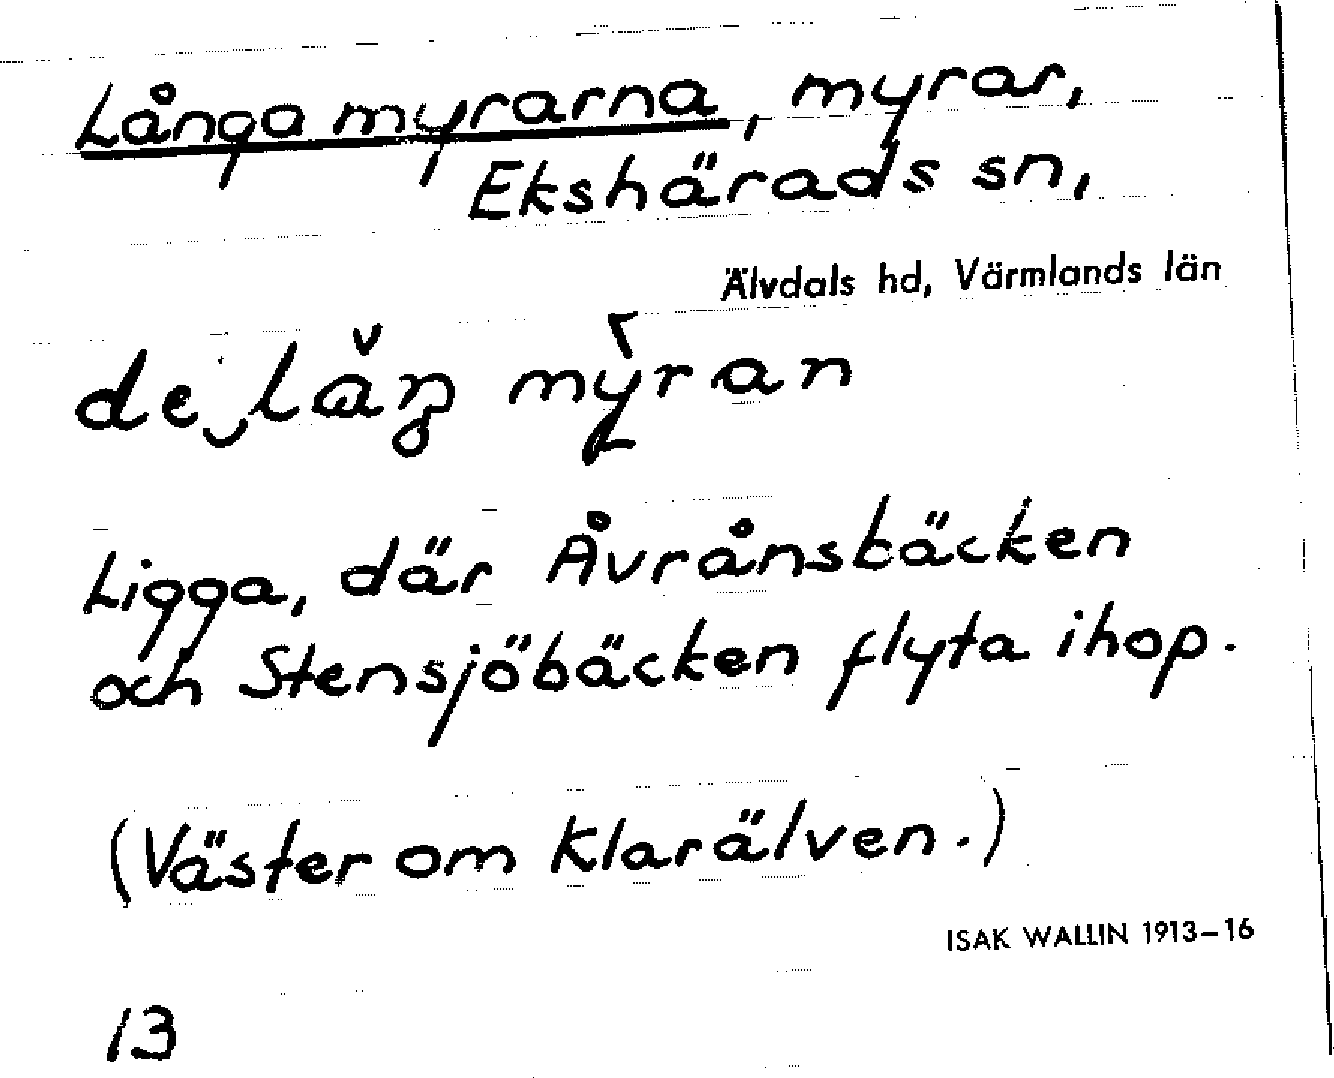 Långa myrarna, myrar,
Ekshärads sn,
Älvdals hd, Värmlands län
de‿lăŋ mỳran
Ligga, där Åvrånsbäcken
och Stensjöbäcken flyta ihop.
(Väster om Klarälven.)
ISAK WALLIN 1913–16
13